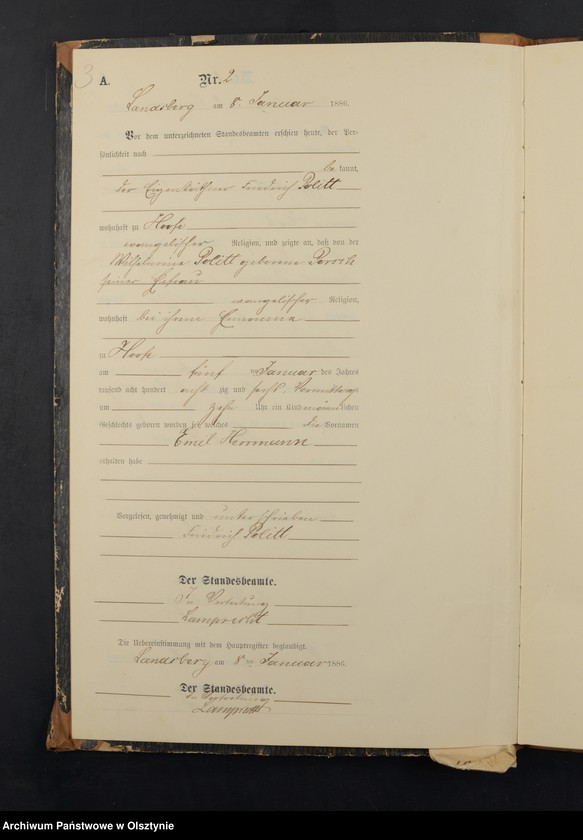 3
A.
Nr. 2
Landsberg am 8. Januar 1886.
Vor dem unterzeichneten Standesbeamten erschien heute, der Per-
sönlichkeit nach
be kannt,
der Eigenkäthner Friedrich Politt
wohnhaft zu Hoofe
evangelischer Religion, und zeigte an, daß von der
Wilhelmine Politt geborene
seiner Ehefrau
evangelischer Religion,
wohnhaft bei ihrem Ehemanne
zu Hoofe
am fünf ten Januar des Jahres
tausend acht hundert acht zig und sechs, Vormittags
um zehn Uhr ein Kind männlichen
Geschlechts geboren worden sei, welches die Vornamen
Emil Herrmann
erhalten habe
Vorgelesen, genehmigt und unterschrieben
Friedrich Politt
Der Standesbeamte.
In Vertretung
Lamprecht
Die Uebereinstimmung mit dem Hauptregister beglaubigt.
Landsberg am 8 ten Januar 1886.
Der Standesbeamte.
In Vertretung
Lamprecht
Archiwum Państwowe w Olsztynie